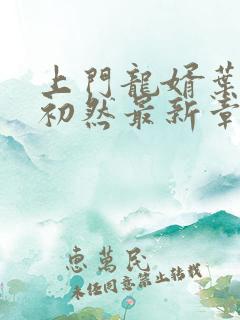 上門龍婿葉
初然最新章
惠萬民
未经同意禁止转载